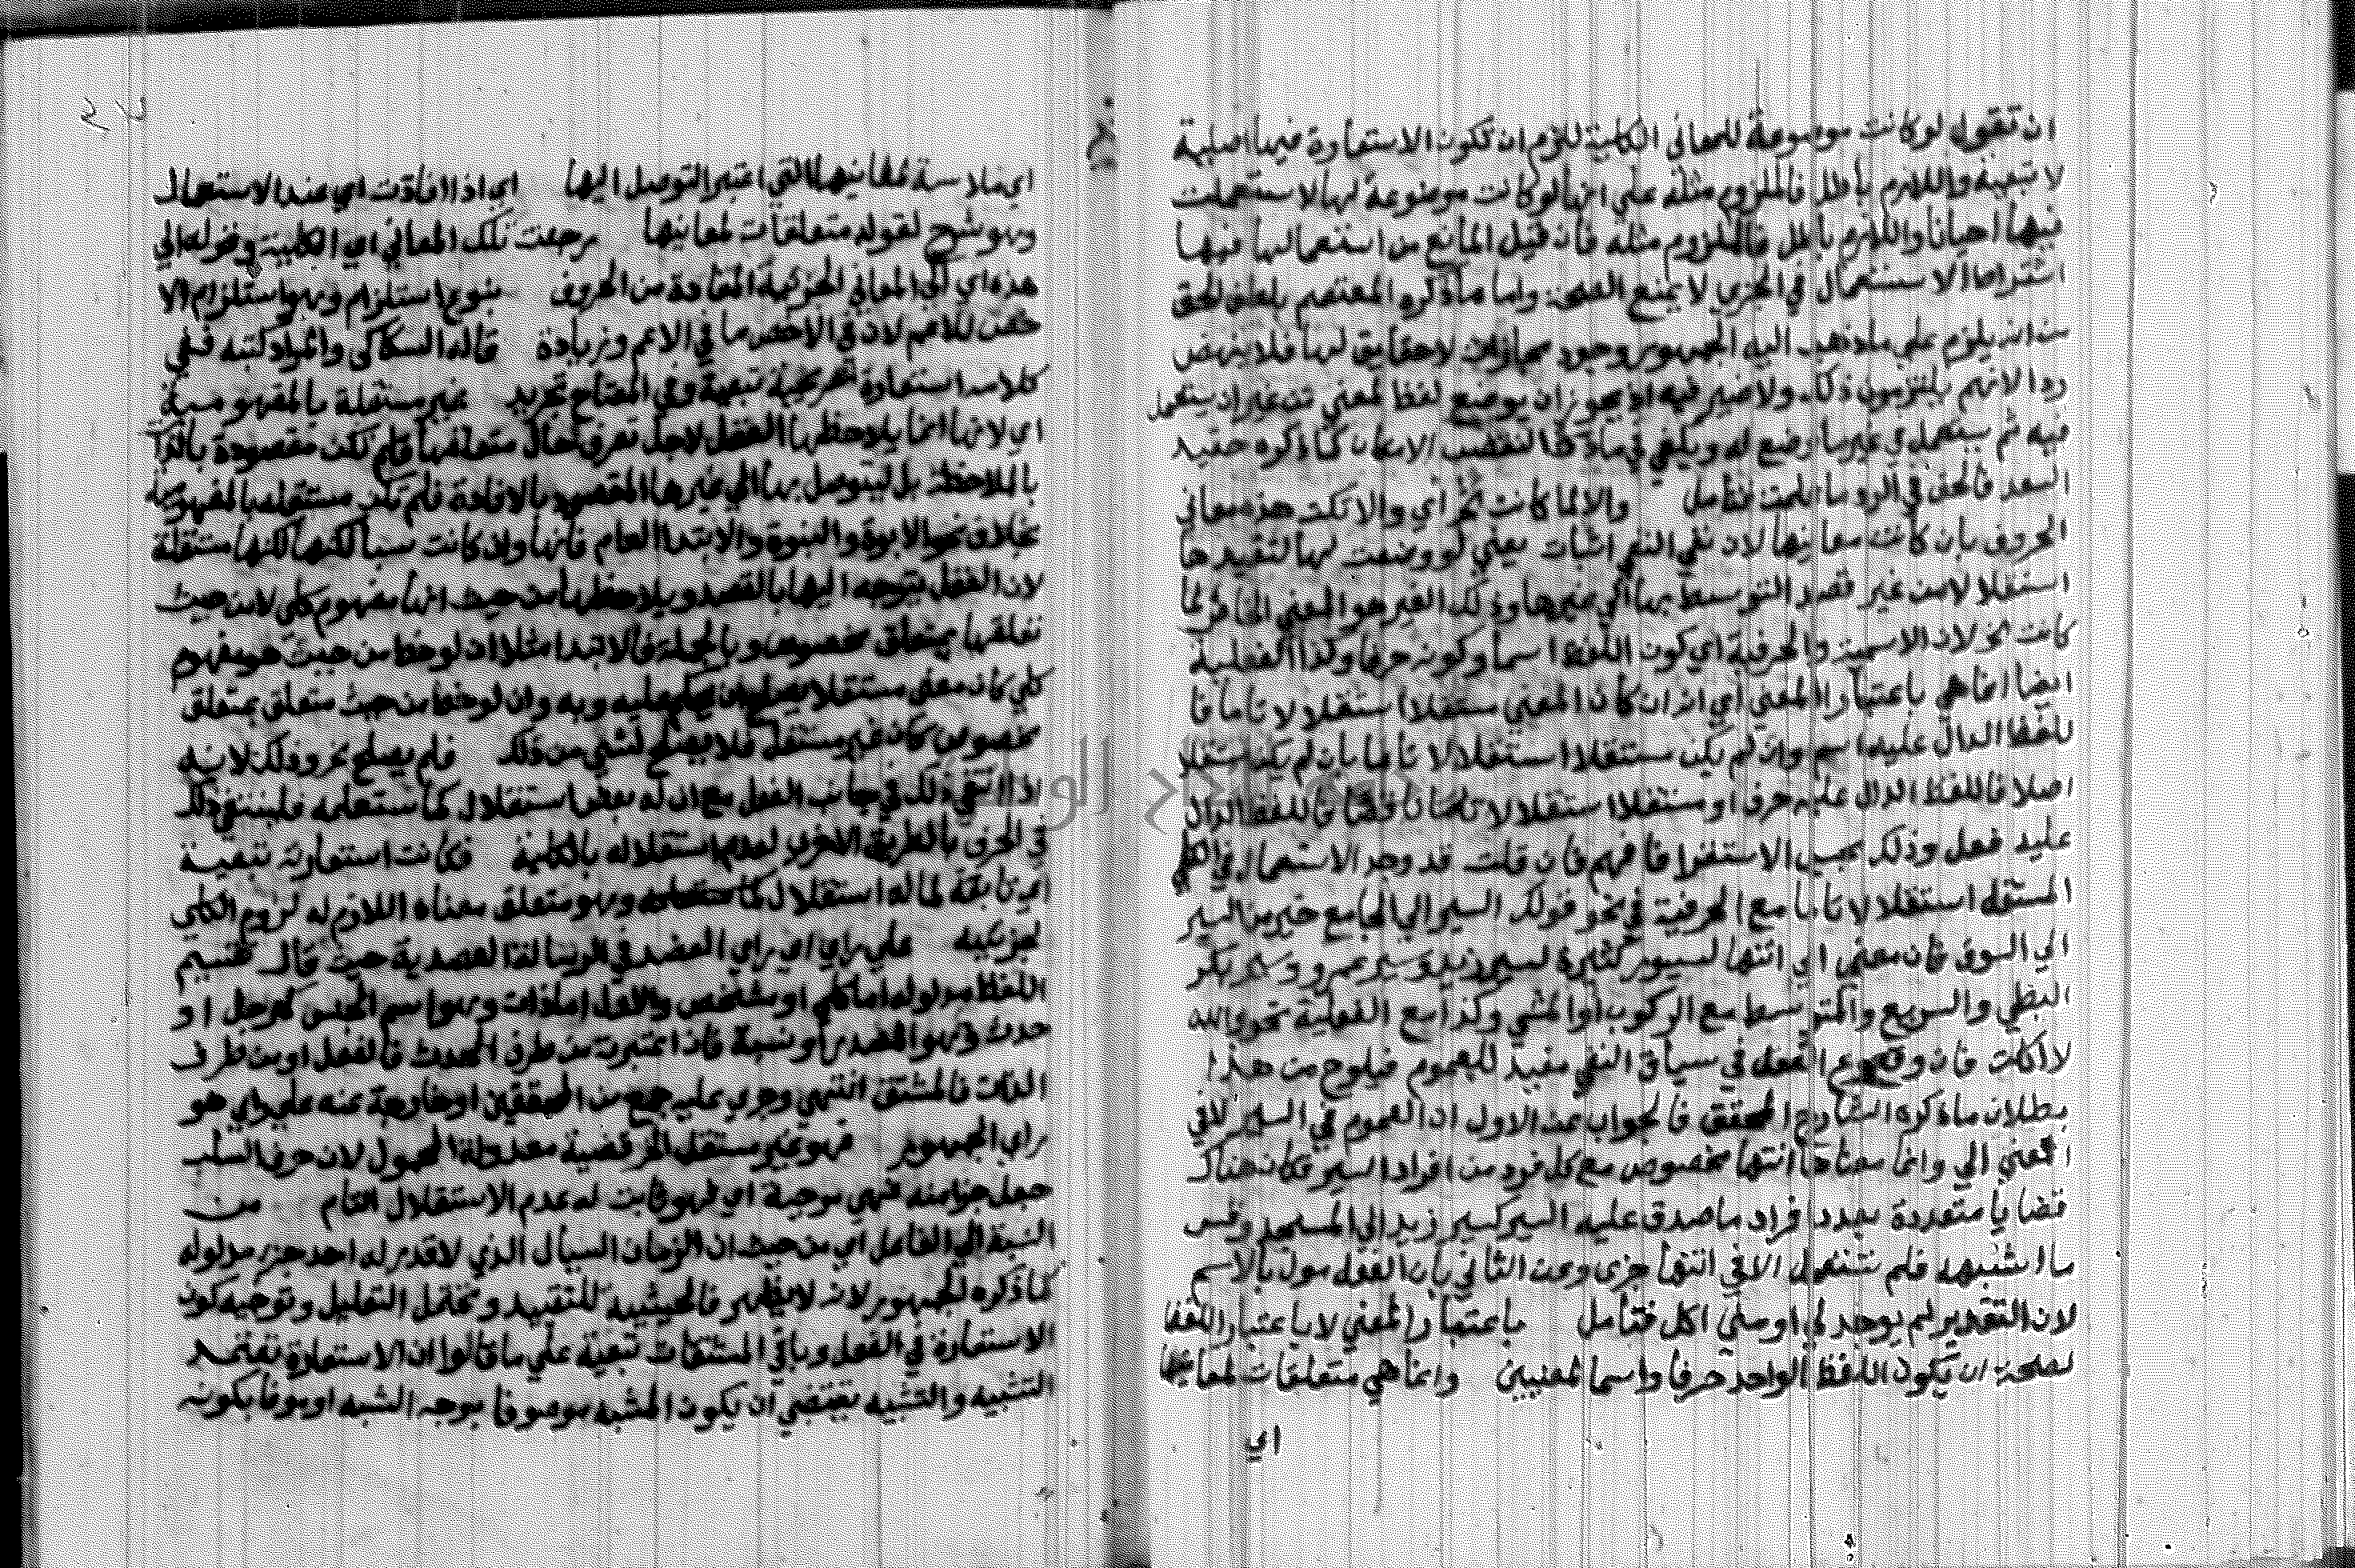 ان تقول لو كانت موضوعة للمعاني الكلية للزم ان تكون الاستعارة فيها اصلية
لا تبعية واللازم باطل فالملزوم مثله علي انها لو كانت موضوعة لها لاستعملت
فيها احيانا واللازم باطل فالملزوم مثله فان قيل المانع من استعمالها فيها
اشتراط الاستعمال في الجزي لا يمنع واما ما ذكره المعتصم بلطف الحق
من انه يلزم علي ما ذهب اليه الجمهور وجود مجازات لا حقايق لها فلا ينهض
ردا لانهم يلتزمون ذلك ولا ضير فيه اذ يجوز ان يوضع لفظ لمعني من غير ان يستعمل
فيه ثم يستعمل في غير ما وضع له ويكفي في الامكان كما ذكره حفيد
السعد فالحق في فتامل والا لما كانت الخ اي والا تكن هذه معاني
الحروف بان كانت معانيها لان نفي النفي اثبات يعني لو وضعت لها لتفيدها
استقلالا من غير قصد التوسط بها الي غيرها وذلك الغير هو المعني الخاص لما
كانت الخ لان الاسمية والحرفية اي كون اللفظ اسما وكونه حرفا وكذا الفعلية
ايضا انما هي باعتبار المعني اي انه ان كان المعني مستقلا استقلالا تاما فا
للفظ الدال عليه اسم وان لم يكن مستقلا استقلالا تاما بان لم يكن مستقلا
اصلا فاللفظ الدال عليه حرف او مستقلا استقلالا ناقصا فاللفظ الدال
عليه فعل وذلك بحسب الاستقرا فافهم فان قلت قد وجد الاستعمال في الكلي
المستقل استقلالا تاما مع الحرفية في نحو قولك السير الي الجامع خير من السير
الي السوق فان معني الي انتها لسيور كثيرة لسير زيد وسير عمرو وسير بكر
البطي والسريع والمتوسط مع الركوب او المشي وكذا مع الفعلية نحو والله
لا اكلت فان وقوع الفعل في سياق النفي مفيد للعموم فيلوح من هذا
بطلان ما ذكره الشارح المحقق فالجواب عن الاول ان العموم في السير لا في
المعني الي وانما معناها انتها مخصوص مع كل فرد من افراد السير فكان هناك
قضايا متعددة بعدد افراد ما صدق عليه السير كسير زيد الي المسجد وقس
ما اشبهه فلم تستعمل الا في انتها جزي وعن الثاني بان الفعل مول بالاسم
لان التقدير لم يوجد لي او مني اكل فتامل باعتبار المعني لا باعتبار اللفظ
لصحة ان يكون اللفظ الواحد حرفا واسما لمعنيين وانما هي متعلقات لمعانيها
اي
اي ملابسة لمعانيها التي اعتبر التوصل اليها اي اذا افادت اي عند الاستعمال
وهو شرح لقوله متعلقات لمعانيها رجعت تلك المعاني اي الكلية وقوله الي
هذه اي الي المعاني الجزئية المفادة من الحروف بنوع استلزام وهو استلزام الا
خص للاعم لان في الاخص ما في الاعم وزيادة قاله السكاكي والمراد كتبه ففي
كلامه استعارة تصريحية تبعية وفي المفتاح تجريد غير مستقلة بالمفهومية
اي لانها انما يلاحظها العقل لاجل تعرف حال متعلقها فلم تكن مقصودة بالذات
بالملاحظة بل ليتوصل بها الي غيرها المقصود بالافادة فلم تكن مستقلة بالمفهومية
بخلاف نحو الابوة والبنوة والابتدا العام فانها وان كانت نسبا لكنها مستقلة
لان العقل يتوجه اليها بالقصد ويلاحظها من حيث انها مفهوم كلي لا من حيث
تعلقها بمتعلق مخصوص وبالجملة فالابتدا مثلا ان لوحظ من حيث هو مفهوم
كلي كان معني مستقلا يصلح ان يحكم عليه وبه وان لوحظ من حيث متعلق بمتعلق
مخصوص كان غير مستقل فلا يصلح لشي من ذلك فلم يصلح نحو وذلك لانه
اذا انتفي ذلك في جانب الفعل مع ان له بعض استقلال كما ستعلمه فلينتفي ذلك
في الحرف بالطريق الاحري لعدم استقلاله بالكلية فكانت استعارته تبعية
اي تابعة لما له استقلال وهو متعلق معناه اللازم له لزوم الكلي
لجزئيه علي راي اي راي العضد في الرسالة العضدية حيث قال تقسيم
اللفظ مدلوله اما كلي او مشخص والاول اما ذات وهو اسم الجنس كرجل او
حدث وهو المصدر او نسبة فان اعتبرت من طرف الحدث فالفعل او من طرف
الذات فالمشتق انتهي وجري عليه جمع من المحققين او خارجة عنه علي راي هو
راي الجمهور فهو غير مستقل الخ قضية معدولة المحمول لان حرف السلب
جعل جزا منه فهي موجبة اي فهو ثابت له عدم الاستقلال التام من
النسبة الي الفاعل اي من حيث ان الزمان السيال الذي لا قدم له احد جزء مدلوله
كما ذكره الجمهور لانه لا يظهر فالحيثية للتقييد ويحتمل التعليل وتوجيه كون
الاستعارة في الفعل وباقي المشتقات تبعية علي ما قالوا ان الاستعارة تعتمد
التشبيه والتشبيه يقتضي ان يكون المشبه موصوفا بوجه الشبه او موصوفا بكونه